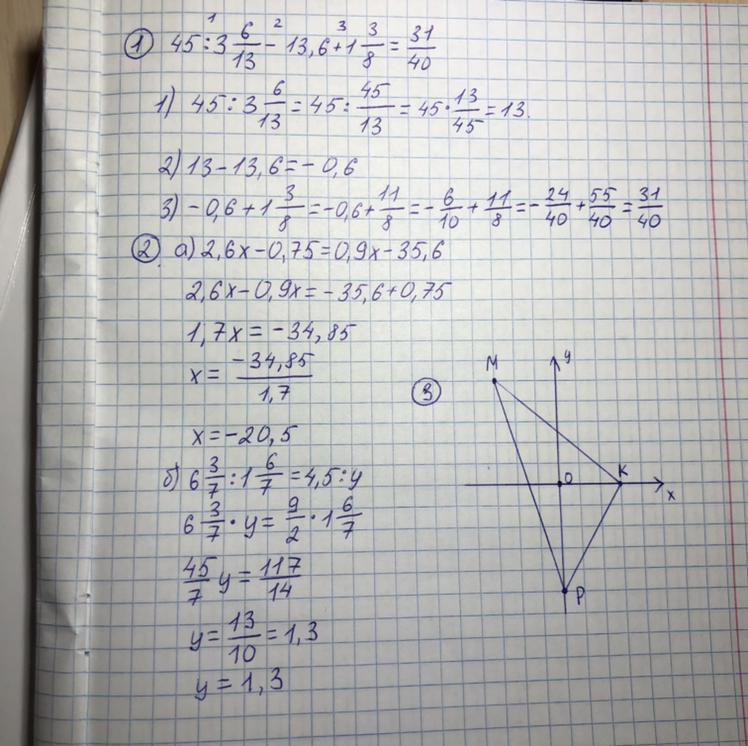 ① 45:3 6/13 - 13,6+1 3/8 = 31/40
1 2 3
1) 45:3 6/13 = 45: 45/13 = 45·13/45 = 13.
2) 13-13,6=-0,6
3) -0,6+1 3/8 = -0,6+ 11/8 = - 6/10 + 11/8 = - 24/40 + 55/40 = 31/40
② а) 2,6х-0,75=0,9х-35,6
2,6х-0,9х=-35,6+0,75
1,7х=-34,85
х= -34,85/1,7
х=-20,5
б) 6 3/7 :1 6/7 =4,5:у
6 3/7 · у= 9/2 ·1 6/7
45/7 у= 117/14
у= 13/10 =1,3
у=1,3
③
М у
О К х
Р